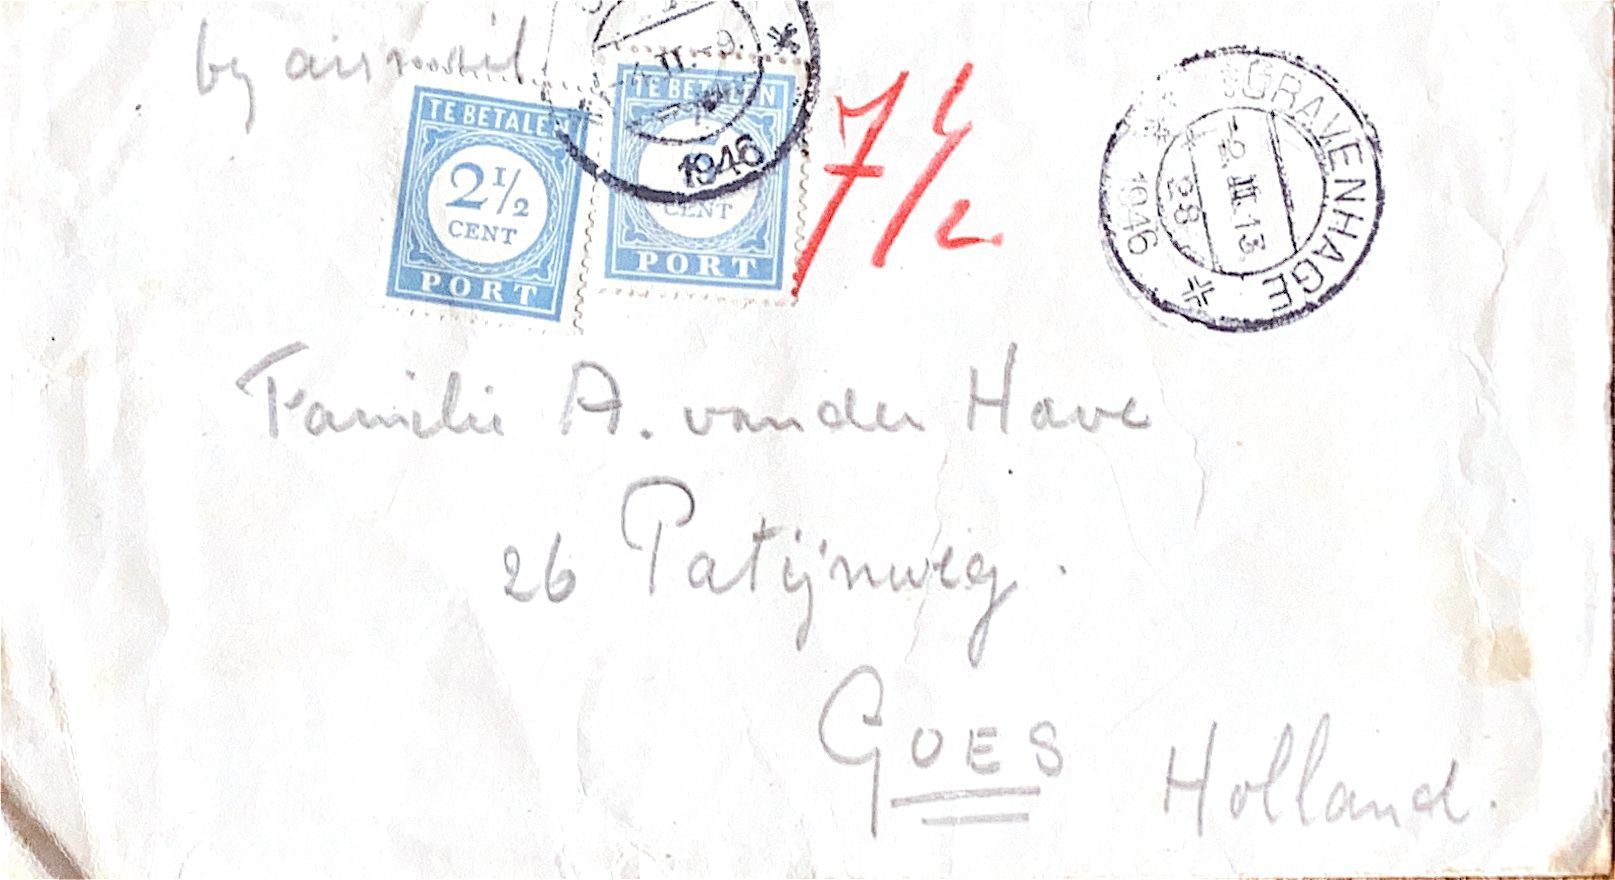 by airmail
TE BETALEN
2½
CENT
PORT
TE BETALEN
CENT
PORT
1946
7½
'SGRAVENHAGE
-2.III.13
28
1946
Familie A. van der Have
26 Patijnweg.
GOES
Holland.